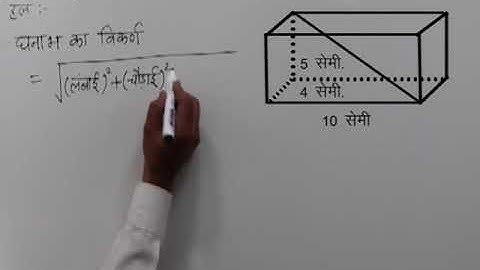 हल :-
घनाभ का विकर्ण
= √(लंबाई)² + (चौड़ाई)²
5 सेमी.
4 सेमी.
10 सेमी